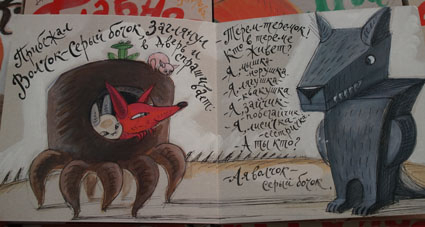 Прибежал
Волчок-Серый бочок. Заглянул
в дверь и
спрашивает:
-Терем-теремок!
Кто в тереме
живет?
-Я мышка-
норушка.
-Я лягушка-
квакушка
-Я зайчик-
побегайчик
-Я лисичка-
сестричка
-А ты кто?
-А я волчок-
Серый бочок.